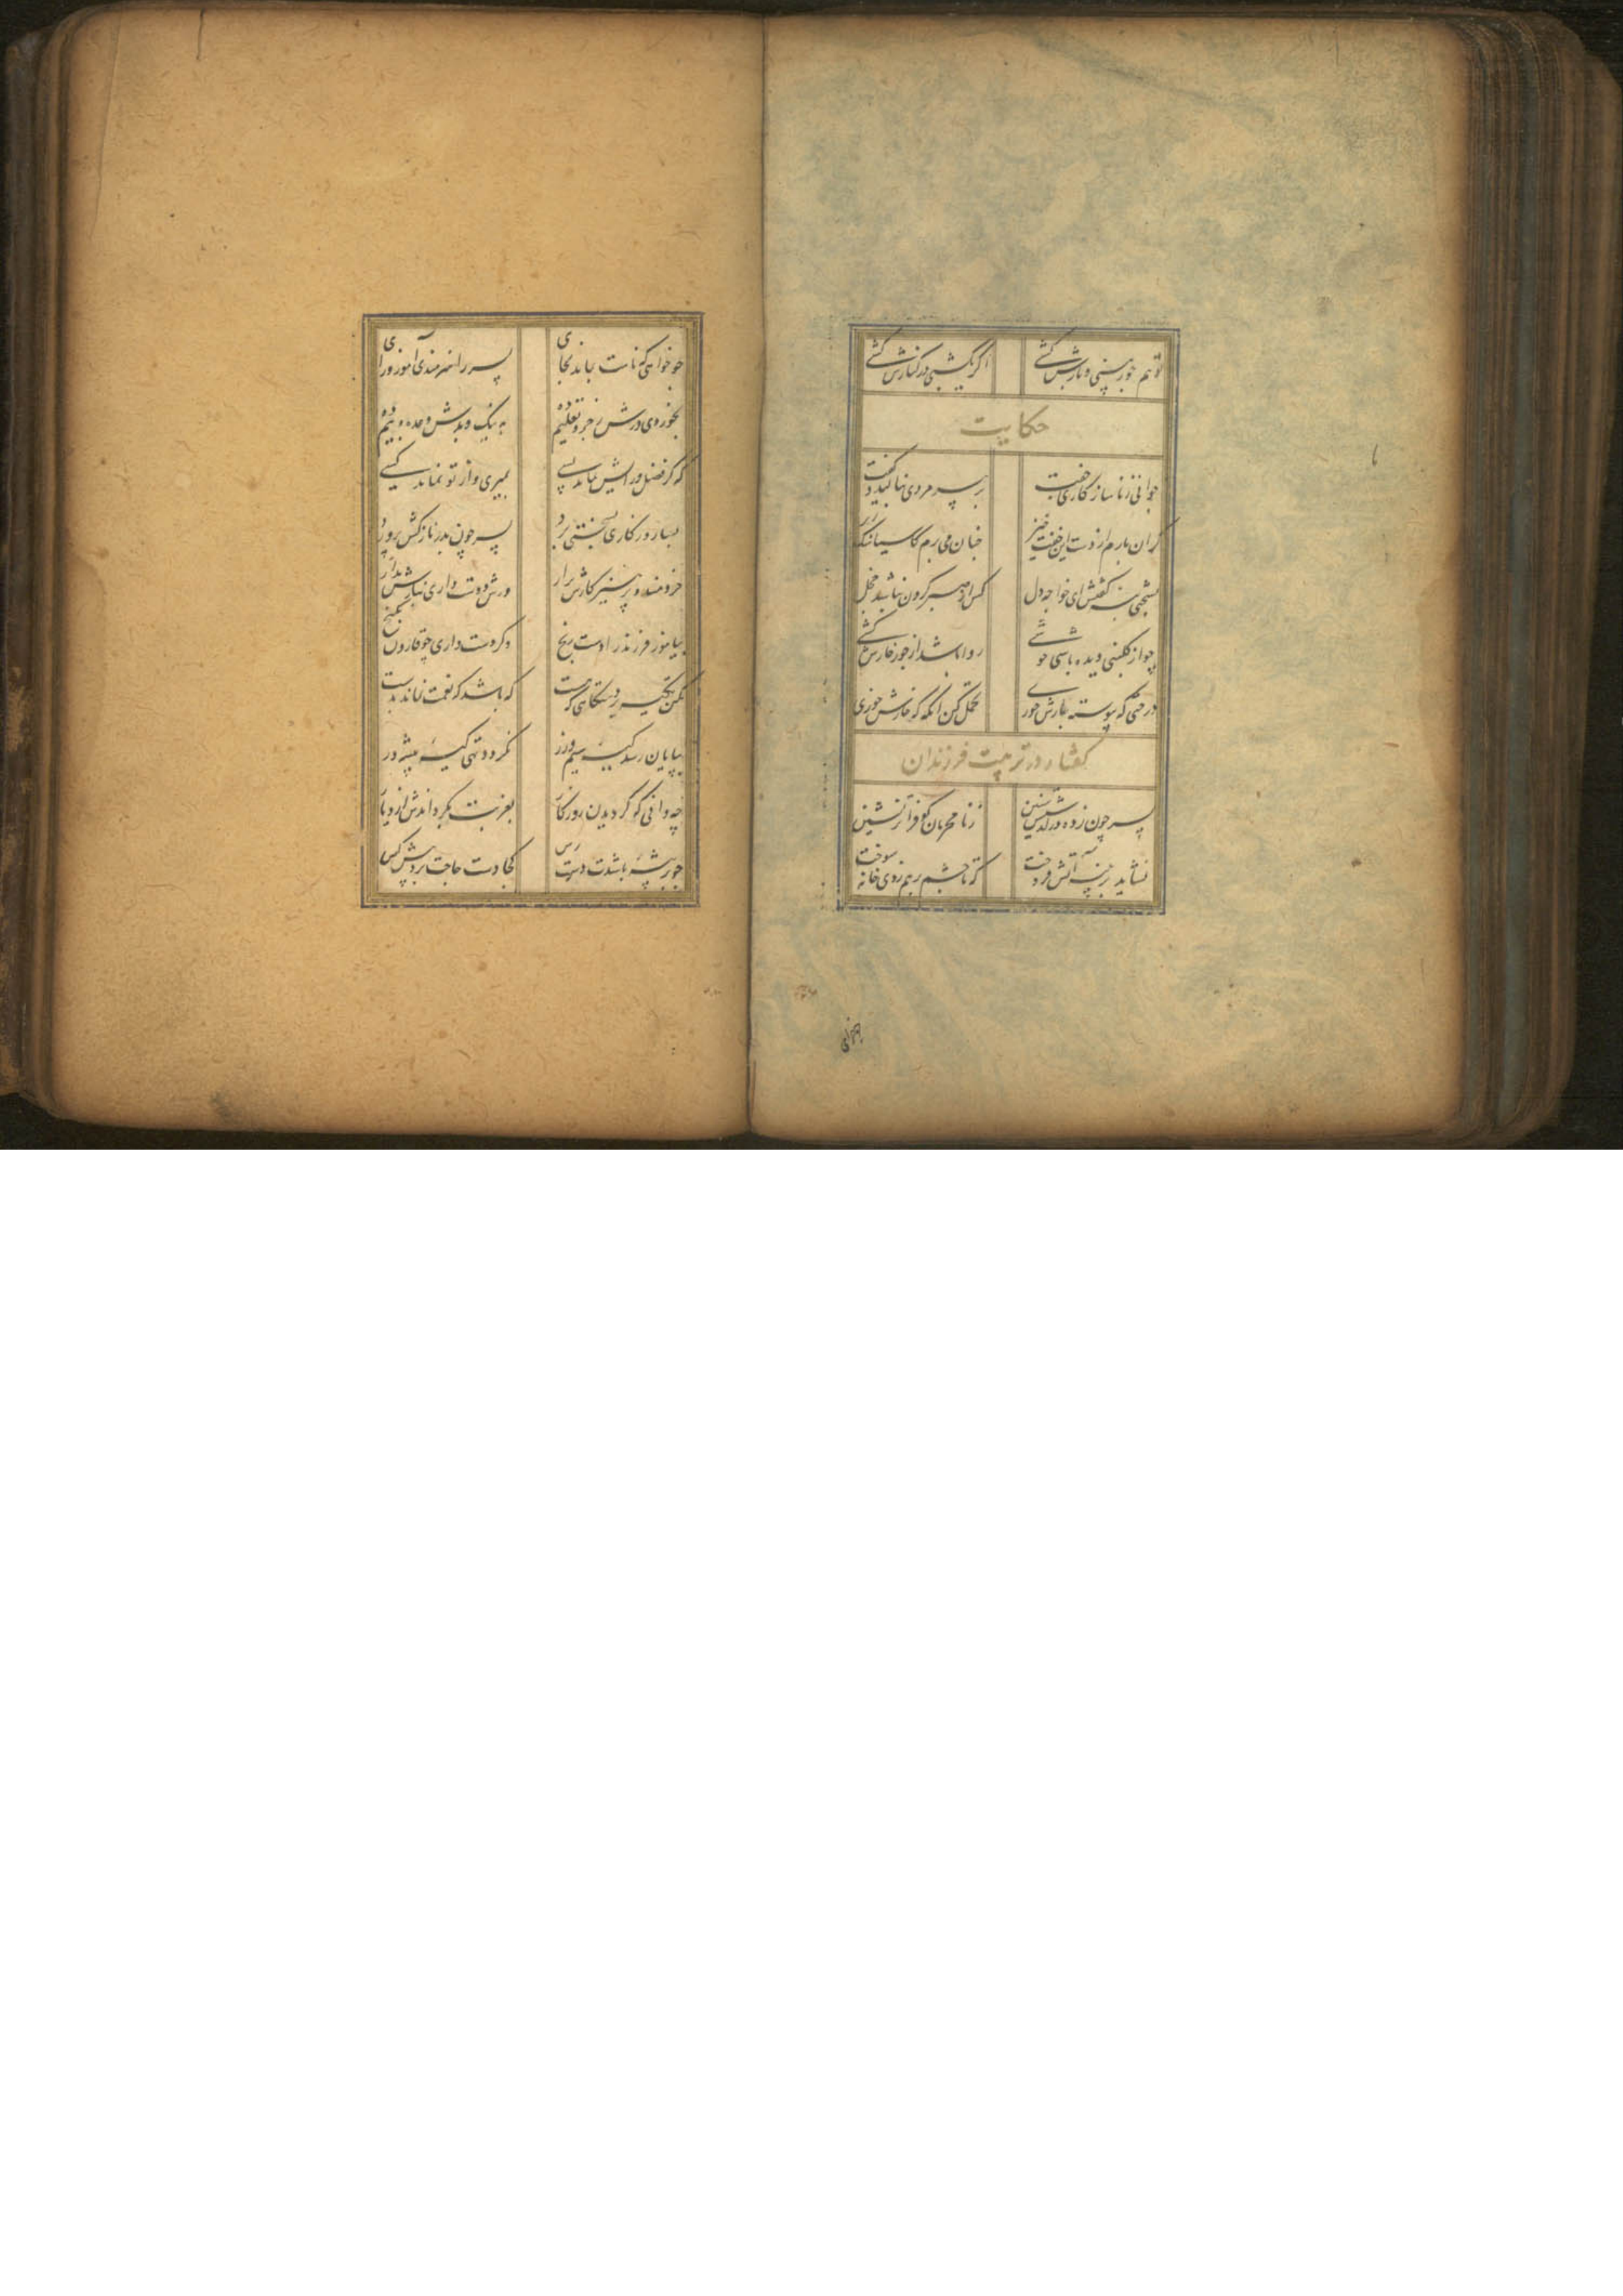 تو هم جور بینی و بارش کشی اکر یکشبی در کنارش کشی
حکایت
جوانی ز ناسازکاری جفت بر پیر مردی بنالید و کفت
کران بارم از دست این چنان می برم کاسیا سنک زیر
بسختی بنه کفتش ای خواجه دل کس از صبر کردن نباشد خجل
چو از کلبنی دیده باشی خوشی روا باشد ار جور خارش کشی
درختی که پیوسته بارش خوری تحمل کن انکه که خارش خوری
کفتار در تربیت فرزندان
پسر چون ز ده در کذشتش سنین ز نامحرمان کو فراتر نشین
نشاید بر پنبه آتش فروخت که تا چشم بر هم زنی خانه سوخت
چو خواهی
چو خواهی که نامت بماند بجای پسر را هنرمندی آموز و رای
بخوردی درش زجر و تعلیم ده به نیک و بدش وعده و بیم ده
که کر فضل و رایش نباشد بسی بمیری و از تو نماند کسی
بسا روزکاری بسختی برد پسر چون پدر نازکش پرورد
خردمند و پرهیزکارش برار ورش دوست داری بنازش مدار
بیاموز فرزند را دست رنج وکر دست داری چو قارون بکنج
مکن تکیه بر دستکاهی که هست که باشد که نعمت نماند بدست
بپایان رسد کیسهٔ سیم و زر نکردد تهی کیسهٔ پیشه ور
چه دانی که کردیدن روزکار بغربت بکرداندش از دیار
چو بر پیشهٔ باشدت دست رس کجا دست حاجت برد پیش کس